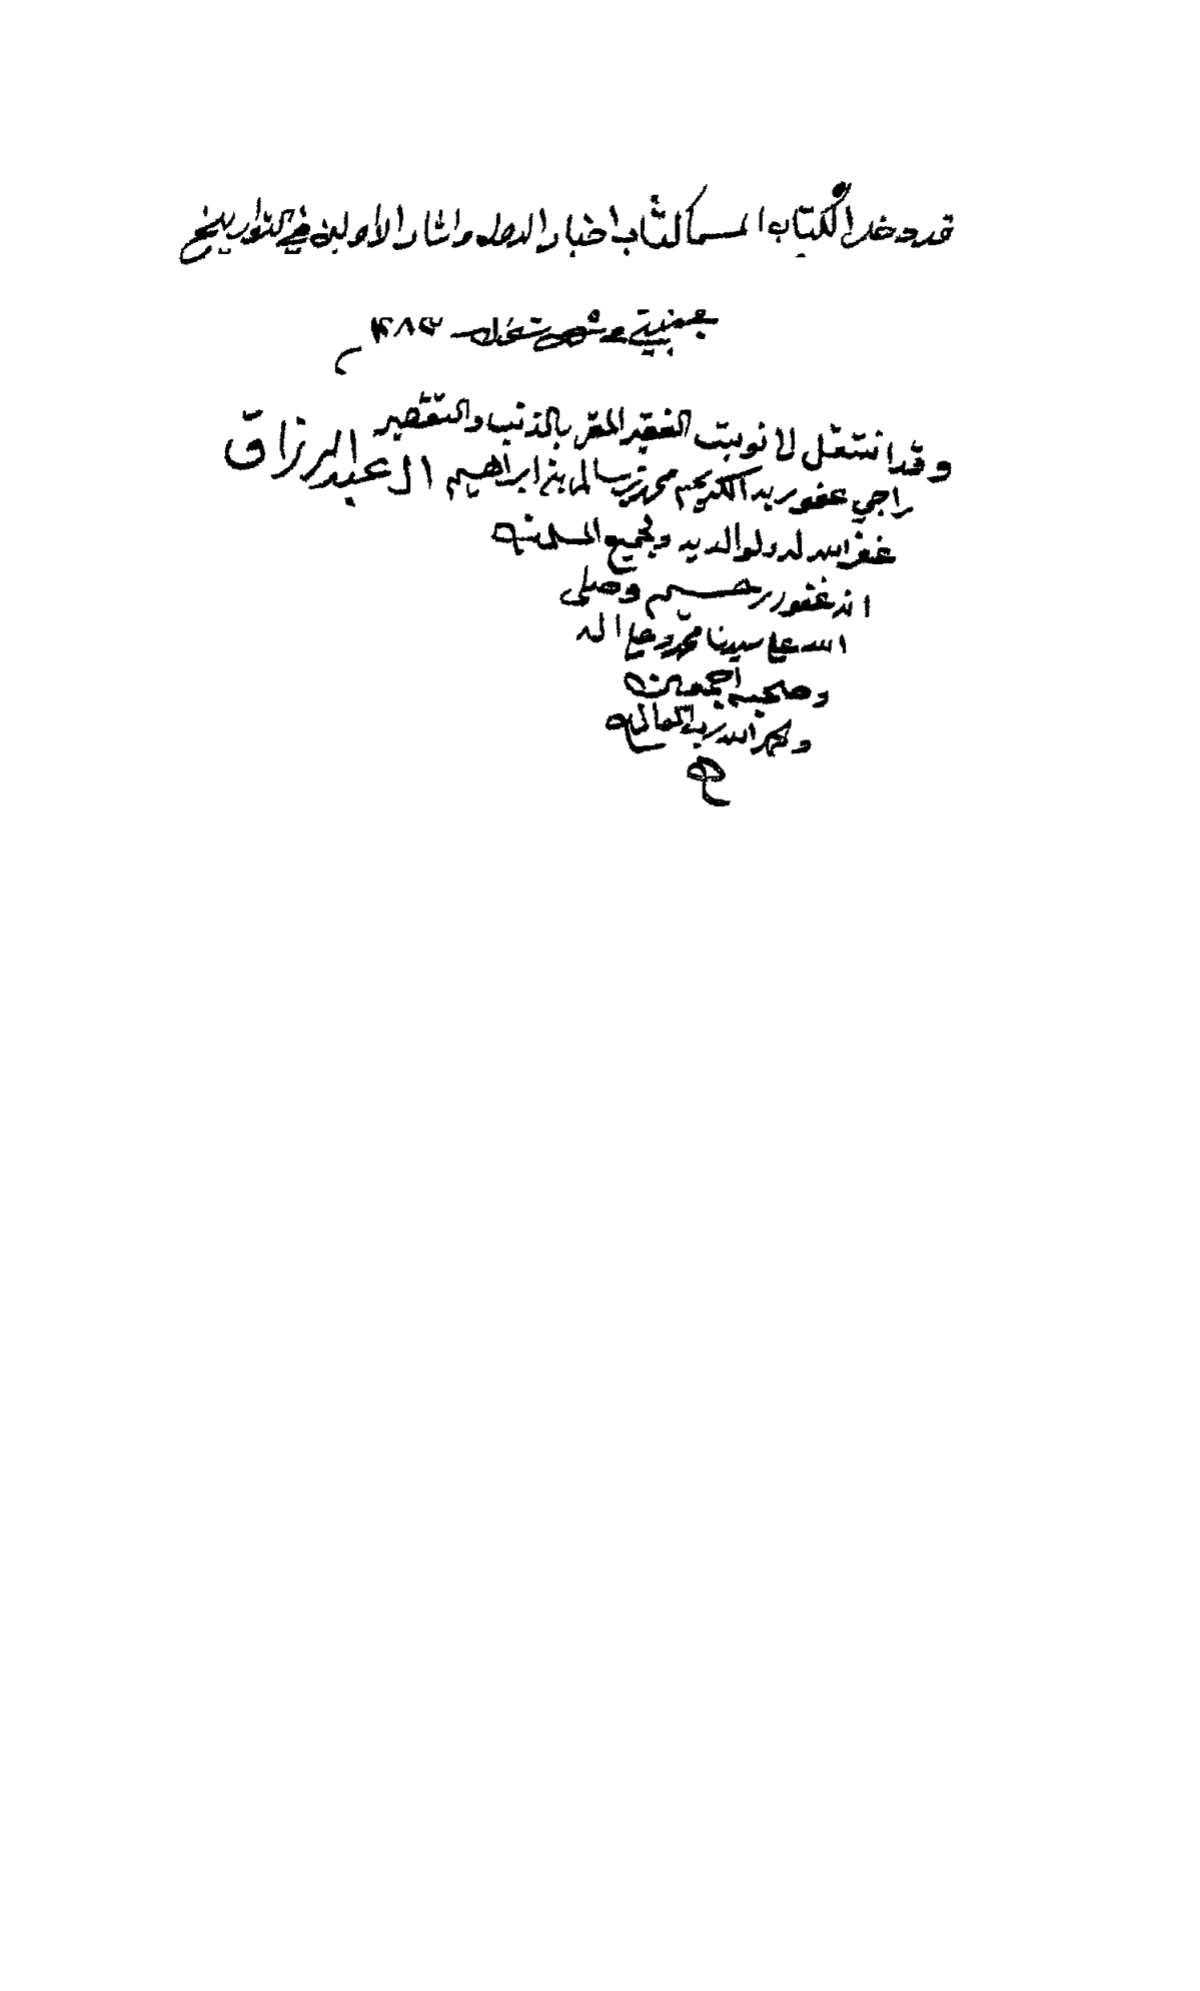 قد دخل الكتاب المسما كتاب اخبار الدول واثار الأولين في التواريخ
وقد انتقل لا نوبت الفقير المقر بالذنب والتقصير
راجي عفو ربه الكريم محمد بن سالم بن ابراهيم ال عبد الرزاق
غفر الله له ولوالديه ولجميع المسلمين
انه غفور رحيم وصلى
الله على سيدنا محمد وعلى اله
وصحبه اجمعين
والحمد لله رب العالمين